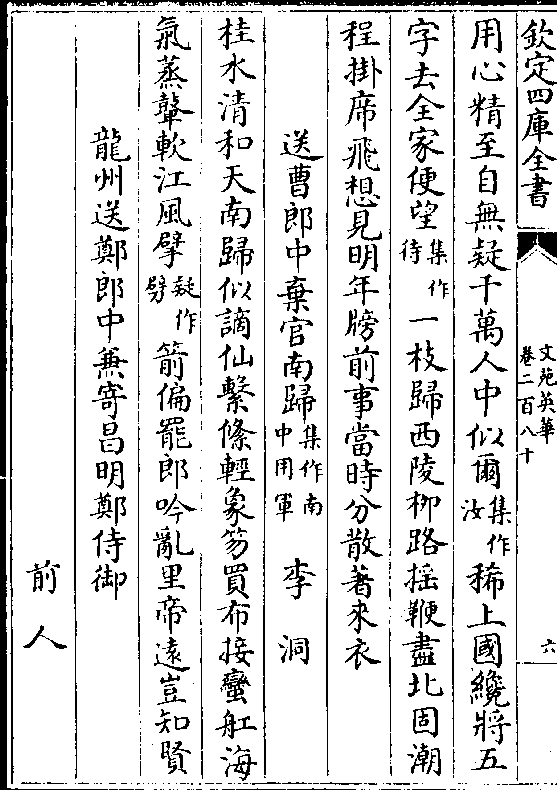 欽定四庫全書
文苑英華
卷二百八十
六
用心精至自無疑千萬人中似爾集作汝稀上國纔將五
字去全家便望集作待一枝歸西陵栁路揺鞭盡北固潮
程掛席飛想見明年牓前事當時分散著來衣
送曹郎中棄官南歸集作南中用軍 李洞
桂水清和天南歸似謫仙繫絛輕象笏買布接蠻舡海
氣蒸鼙軟江風擘疑作劈箭偏罷郎吟亂里帝遠豈知賢
龍州送鄭郎中兼寄昌明鄭侍御
前人